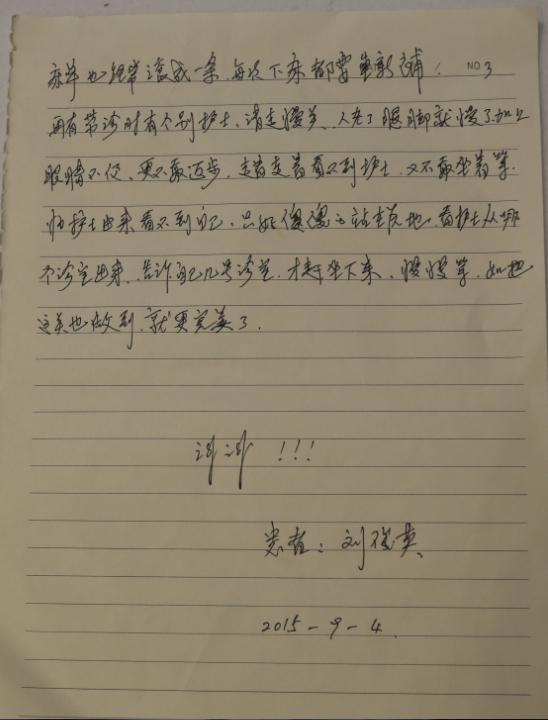 床单也经常滚成一条,每次下床都要重新铺! NO 3
再有带诊时有个别护士,请走慢点,人老了腿脚就慢了,加上
眼睛不便,更不敢迈步,走着走着看不到护士,又不敢坐着等,
怕护士出来看不到自己,只好傻傻的站在原地,看护士从哪
个诊室出来,告诉自己几号诊室,才敢坐下来,慢慢等,如把
这点也做到,就更完美了.
谢谢 !!!
患者:刘俊英
2015-9-4.